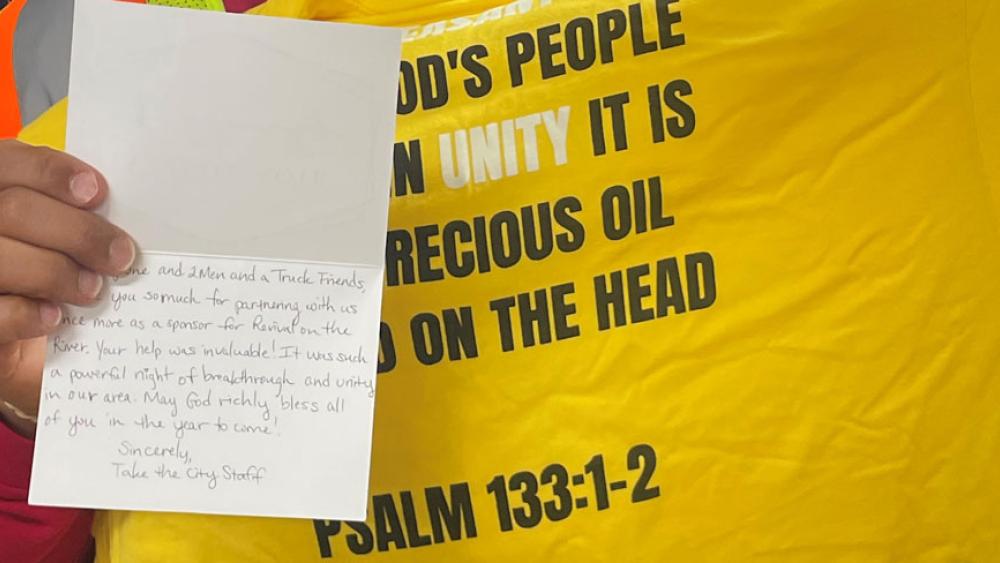 one and 2Men and a Truck Friends,
you so much for partnering with us
nce more as a sponsor for Revival on the
River. Your help was invaluable! It was such
a powerful night of breakthrough and unity
in our area. May God richly bless all
of you in the year to come!
Sincerely,
Take the City Staff
OD'S PEOPLE
N UNITY IT IS
RECIOUS OIL
D ON THE HEAD
PSALM 133:1-2